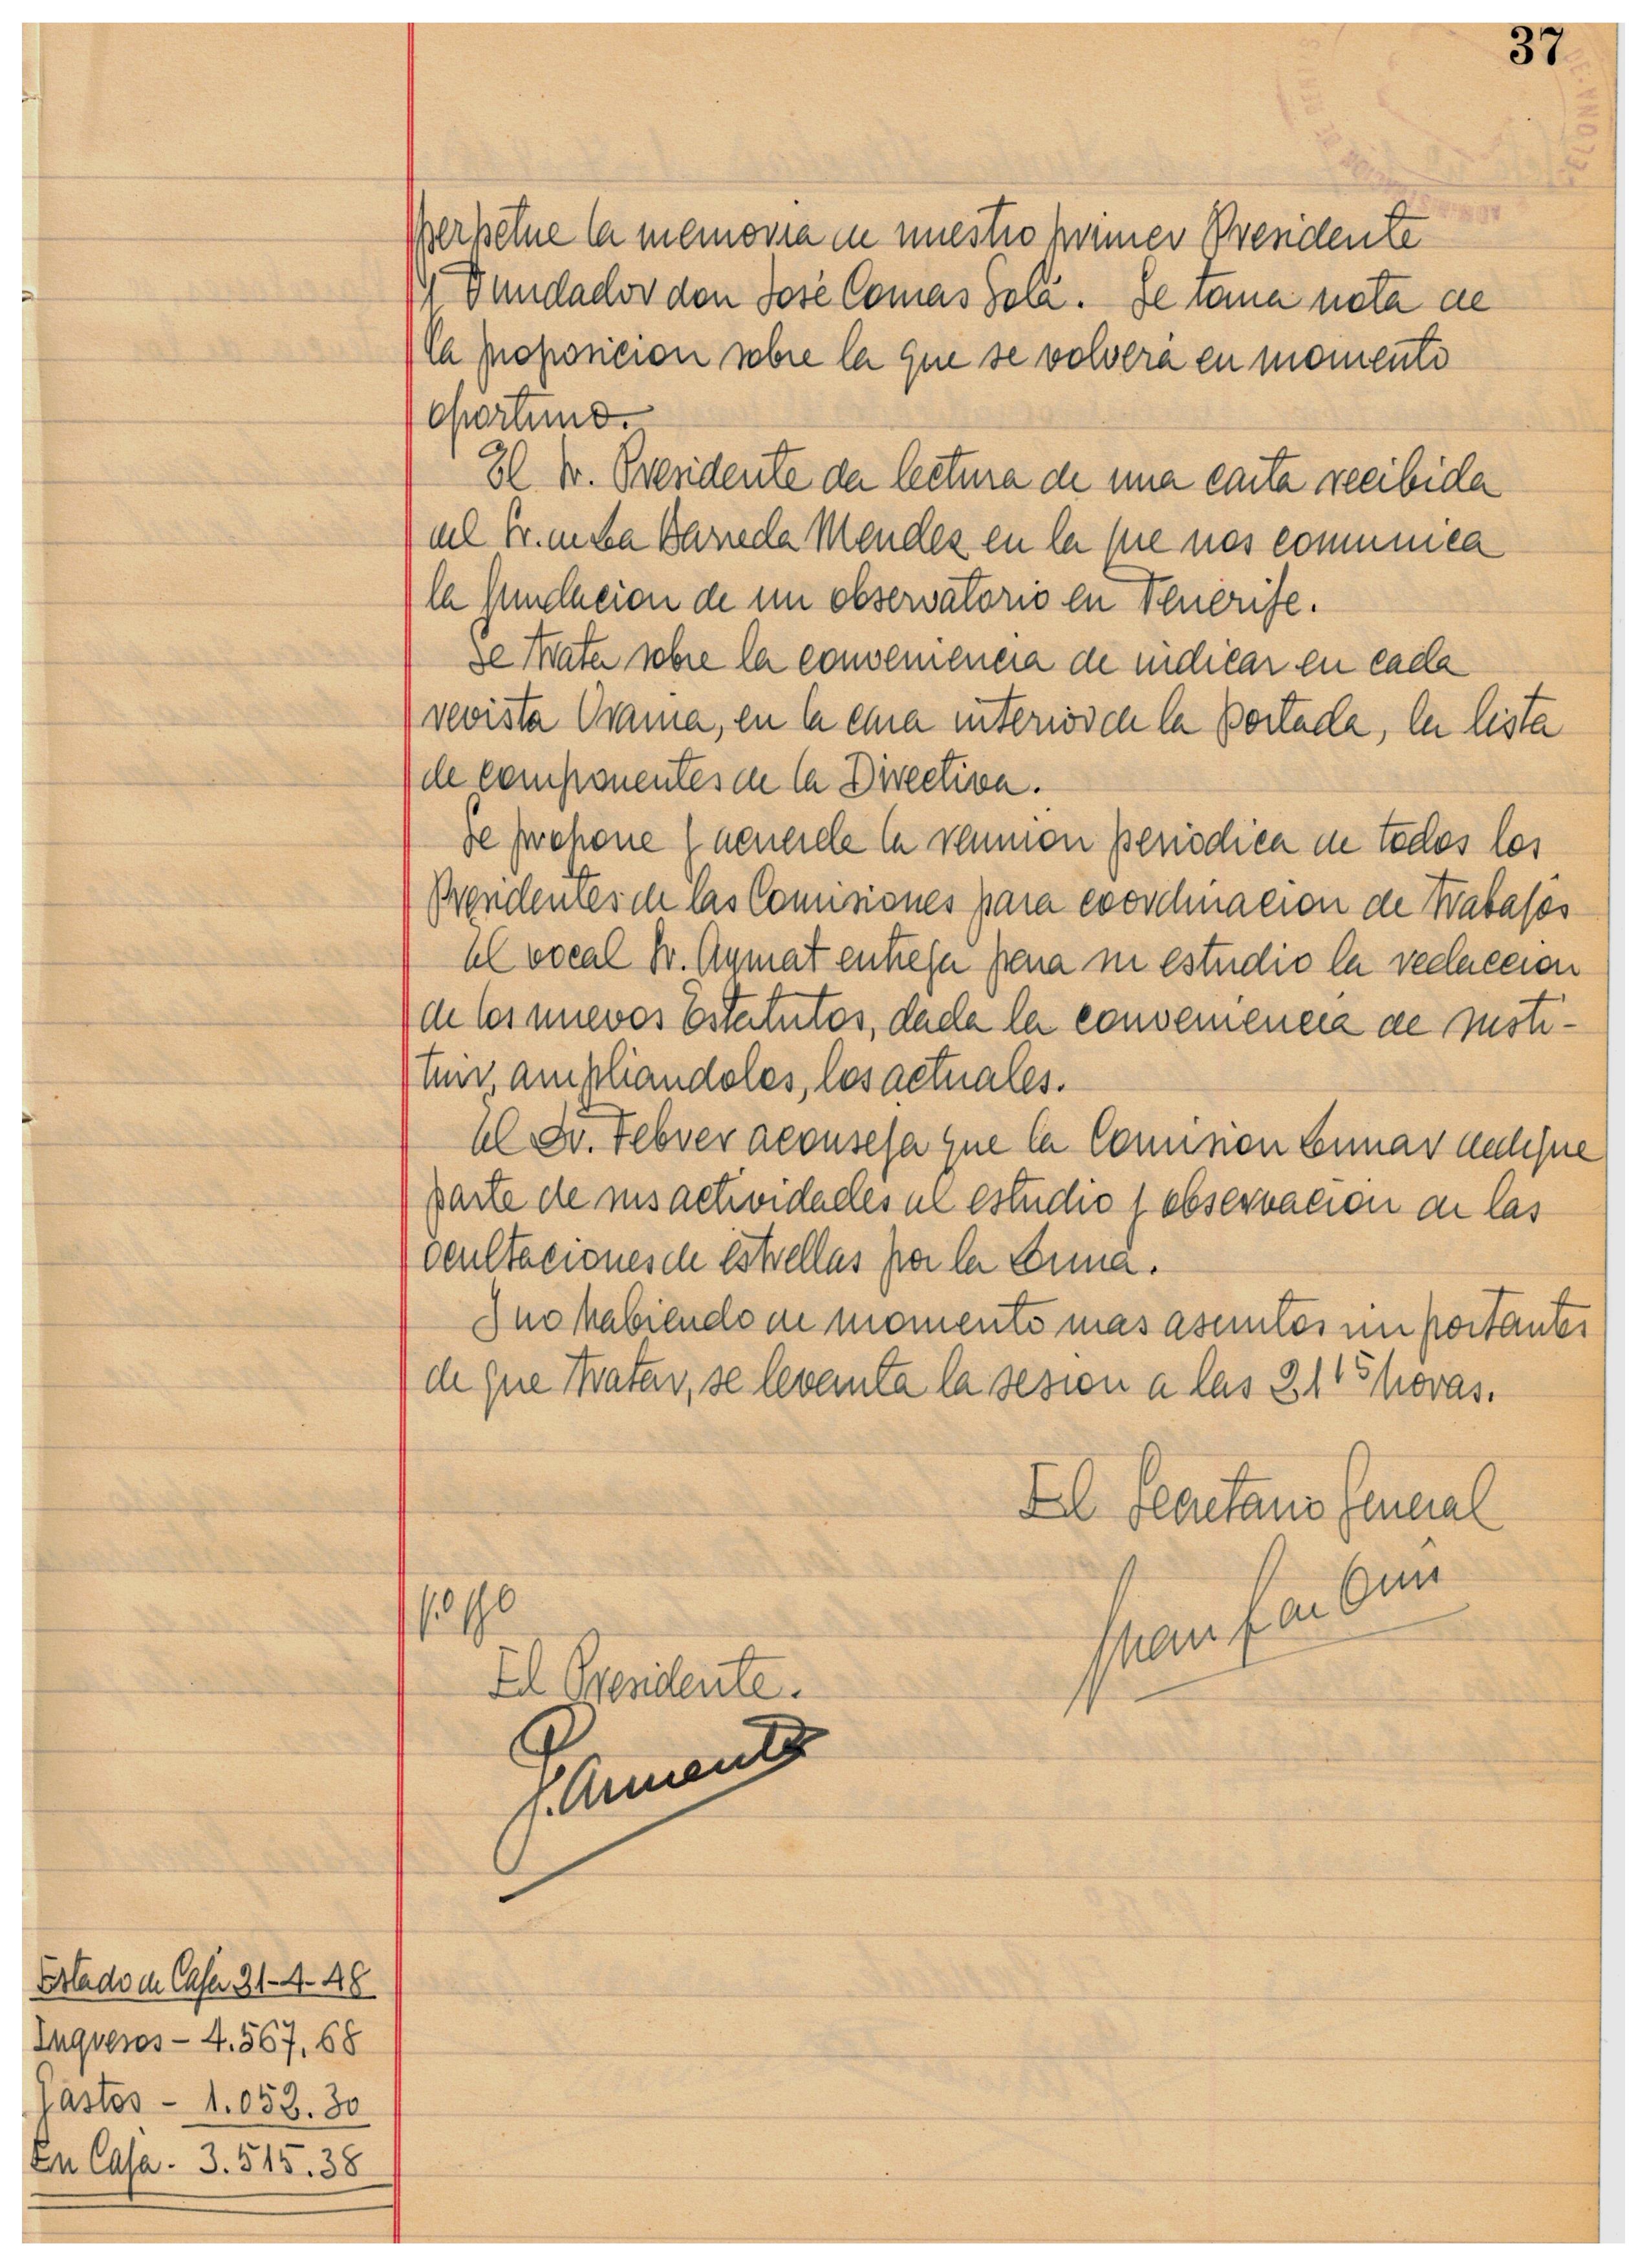 37
perpetue la memoria de nuestro primer Presidente
y Fundador don José Comas Solá. Se toma nota de
la proposicion sobre la que se volverá en momento
oportuno.
El Sr. Presidente da lectura de una carta recibida
del Sr. de La Barreda Mendez en la que nos comunica
la fundacion de un observatorio en Tenerife.
Se trata sobre la conveniencia de indicar en cada
revista Urania, en la cara interior de la portada, la lista
de componentes de la Directiva.
Se propone y acuerda la reunion periodica de todos los
Presidentes de las Comisiones para coordinacion de trabajos
El vocal Sr. Aymat entrega para su estudio la redaccion
de los nuevos Estatutos, dada la conveniencia de susti-
tuir, ampliandolos, los actuales.
El Sr. Febrer aconseja que la Comision Lunar dedique
parte de sus actividades al estudio y observacion de las
ocultaciones de estrellas por la Luna.
Y no habiendo de momento mas asuntos importantes
de que tratar, se levanta la sesion a las 21 15 horas.
El Secretario General
El Presidente.
J. Armenter
Estado de Caja 31-4-48
Ingresos - 4.567,68
Gastos - 1.052.30
En Caja - 3.515.38